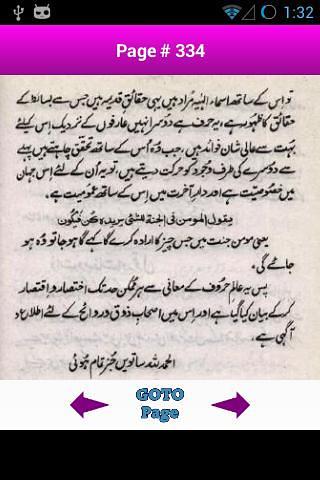 1:32
Page # 334
تو اس کے ساتھ اسماء الٰہیہ مراد ہیں یہی حقائق قدیمہ ہیں جس سے بسائط کے
حقائق کا ظہور ہے، یہ حرف ہے دوسرا نہیں عارفوں کے نزدیک اس کیلئے
بہت سے عالی شان فوائد ہیں، جب وہ اُس کے ساتھ تحقق چاہتے ہیں پہلے
سے دوسرے کی طرف وجود کو حرکت دیتے ہیں، تو یہ اُن کے لئے اس جہان
میں خصوصیت ہے اور دارِ آخرت میں اس کے ساتھ عمومیت ہے۔
يقول المومن فى الجنة الشئى يريده كن فيكون
یعنی مومن جنت میں جس چیز کا ارادہ کرے گا کہے گا ہو جا تو وہ ہو
جائے گی۔
پس یہ عالمِ حروف کے معانی سے ہر ممکن حد تک اختصار و اقتصار
کر کے بیان کیا گیا ہے اور اس میں اصحابِ ذوق و روائح کے لئے اطلاع و
آگہی ہے۔
الحمد للہ ساتویں جُز تمام ہوئی
GOTO
Page